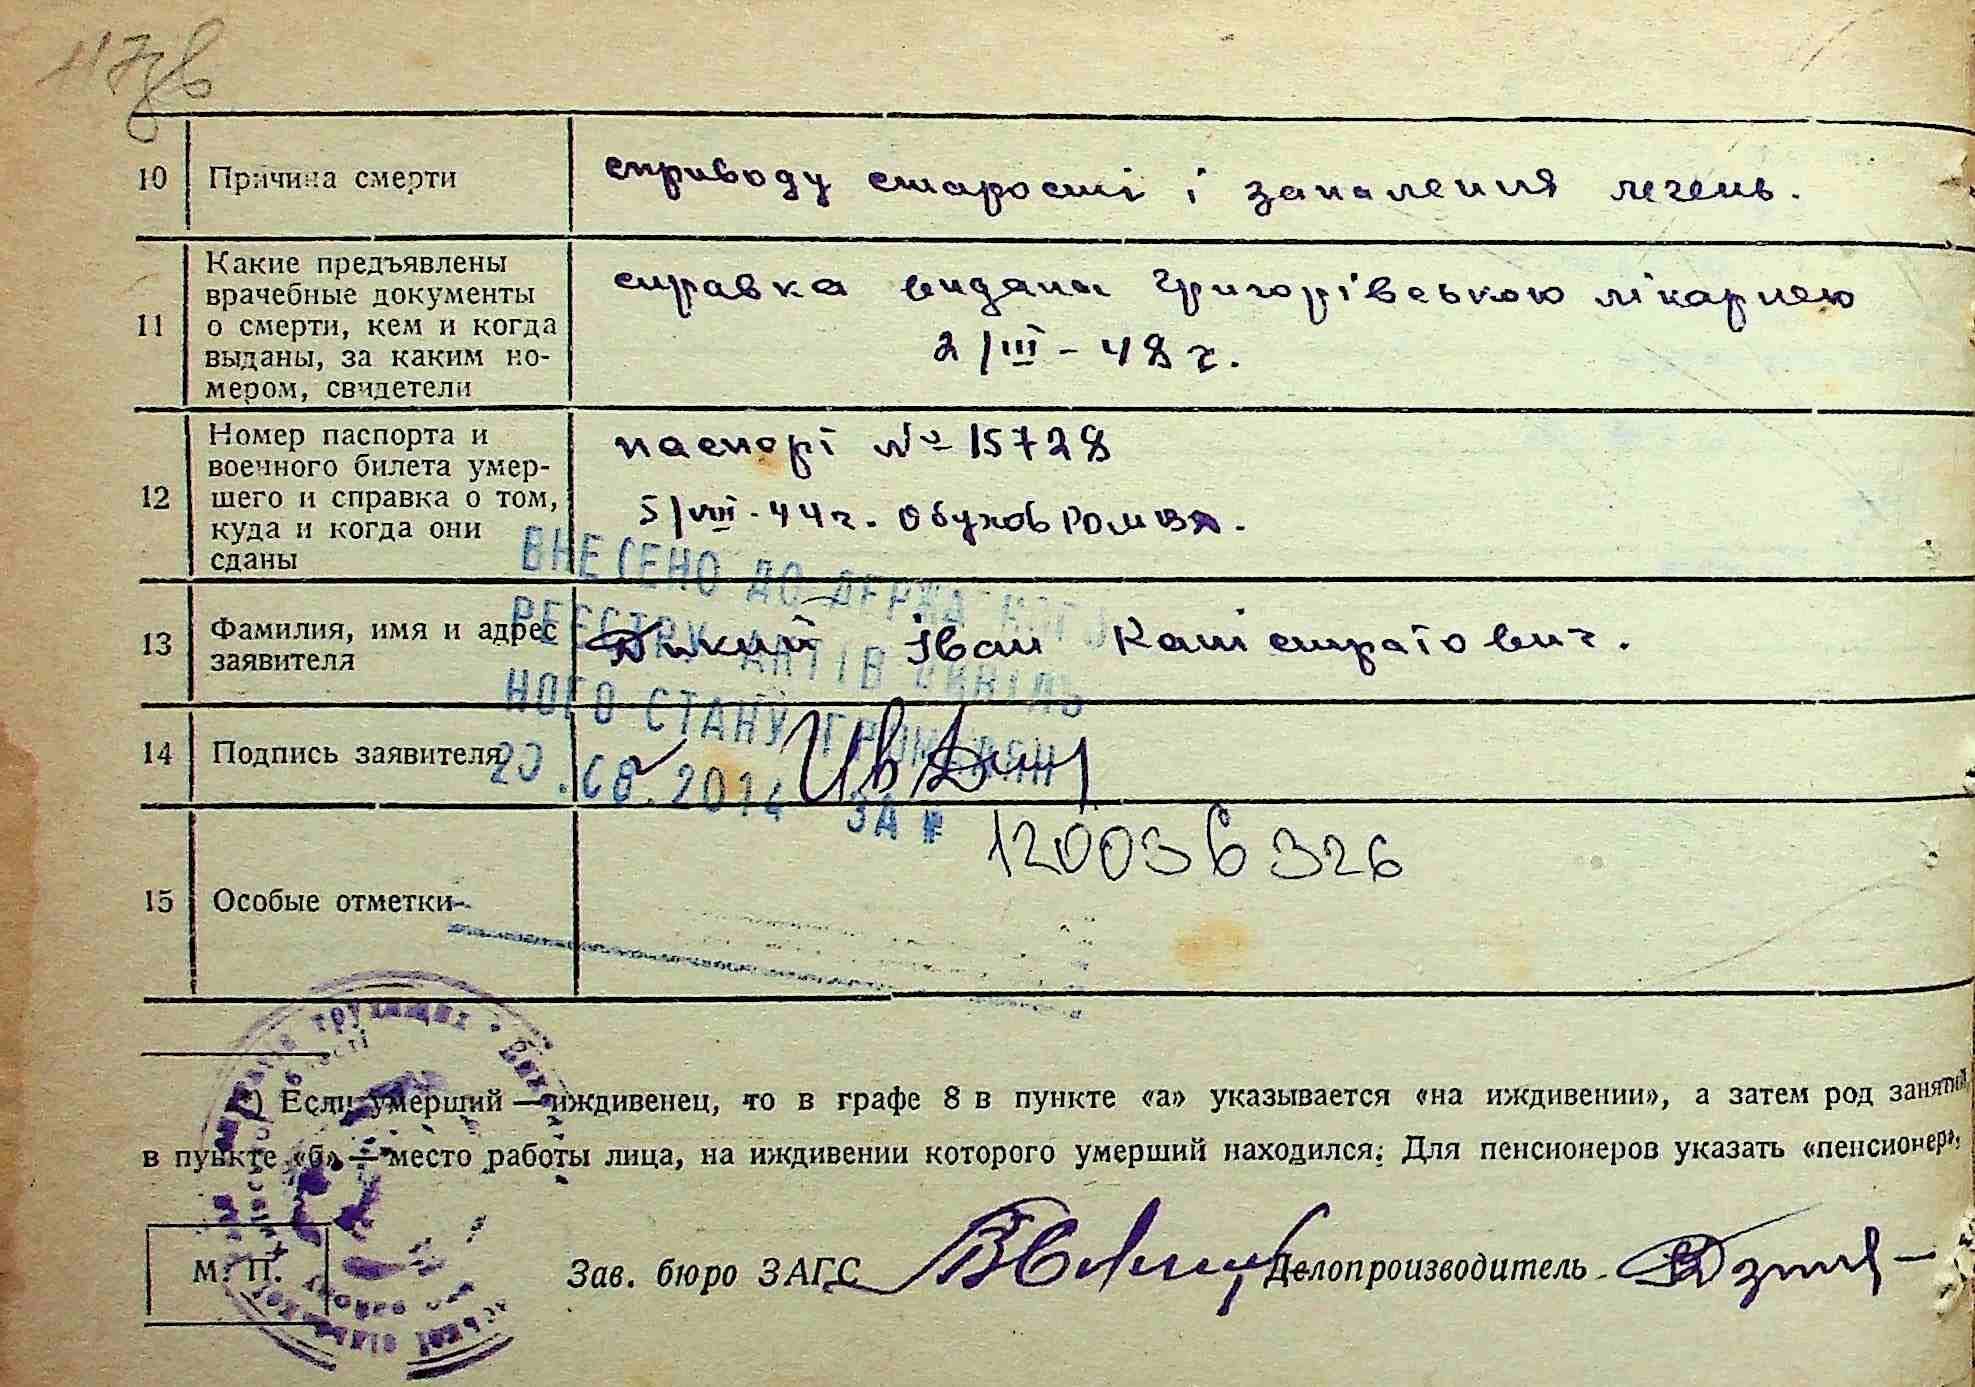 10 Причина смерти
сприводу старості і запалення легень.
11 Какие предъявлены
врачебные документы
о смерти, кем и когда
выданы, за каким но-
мером, свидетели
справка видана Григорівською лікарнею
2/III - 48 г.
12 Номер паспорта и
военного билета умер-
шего и справка о том,
куда и когда они
сданы
паспорт № 15728
5/VIII - 44 г. Обухов
ВНЕСЕНО ДО ДЕРЖАВНОГО
РЕЄСТРУ АКТІВ ЦИВІЛЬ
НОГО СТАНУ ГРОМАДЯН
20.08.2014 ЗА №
120036326
13 Фамилия, имя и адрес
заявителя
Дикий Іван Калістратович.
14 Подпись заявителя
15 Особые отметки
*) Если умерший — иждивенец, то в графе 8 в пункте «а» указывается «на иждивении», а затем род занятий,
в пункте «б» — место работы лица, на иждивении которого умерший находился. Для пенсионеров указать «пенсионер».
М. П.
Зав. бюро ЗАГС
Делопроизводитель